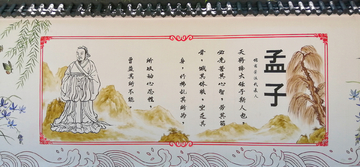 孟子
儒家学派代表人
天将降大任于斯人也，
必先苦其心智，劳其筋
骨，饿其体肤，空乏其
身，行拂乱其所为，
所以动心忍性，
曾益其所不能。